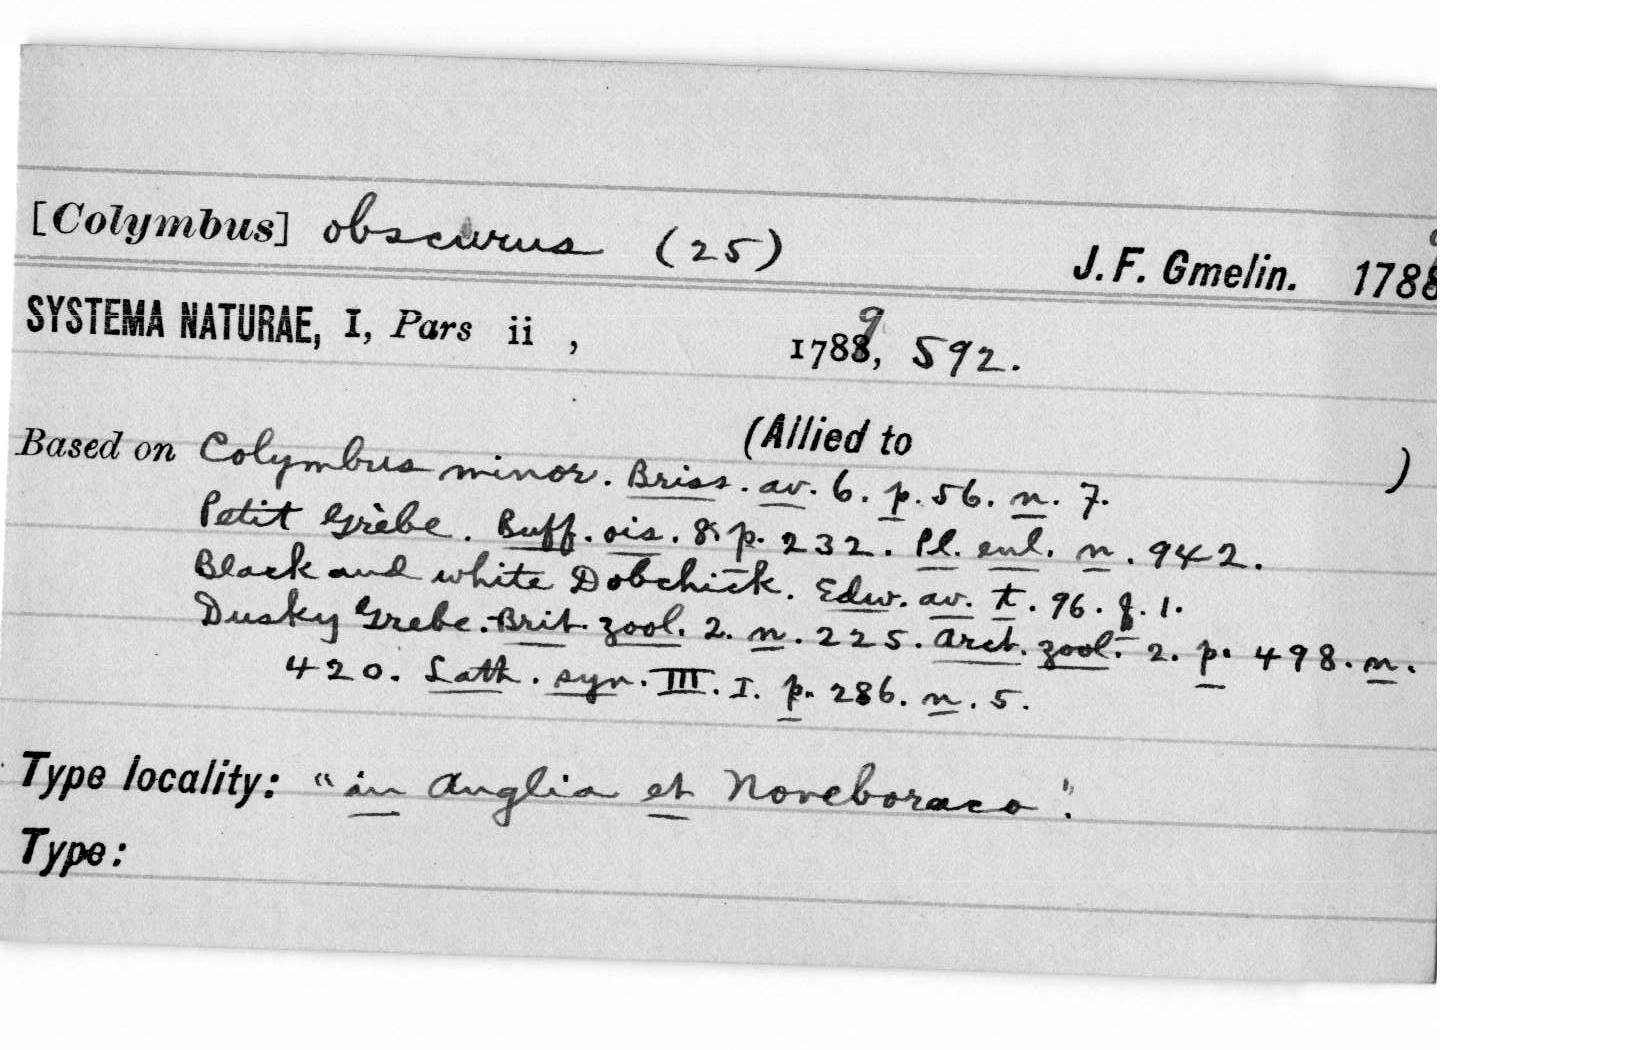 [Colymbus] obscurus (25)
J. F. Gmelin. 1788 9
SYSTEMA NATURAE, I, Pars ii , 1788 9, 592.
(Allied to )
Based on Colymbus minor. Briss. av. 6. p. 56. n. 7.
Petit Grèbe. Buff. ois. 8. p. 232. Pl. enl. n. 942.
Black and white Dobchick. Edw. av. t. 96. f. 1.
Dusky Grebe. Brit. zool. 2. n. 225. Arct. zool. 2. p. 498. n.
420. Lath. syn. III. I. p. 286. n. 5.
Type locality: "in Anglia et Noveboraco".
Type: